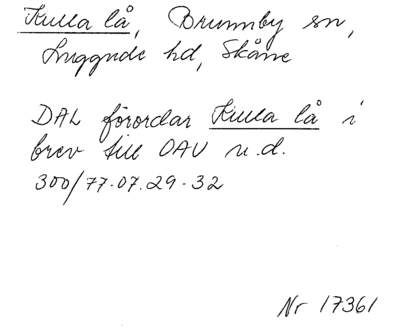 Kulla lå, Brunnby sn,
Luggude hd, Skåne
DAL förordar Kulla lå i
brev till OAU n.d.
300/77.07.29-32
Nr 17361